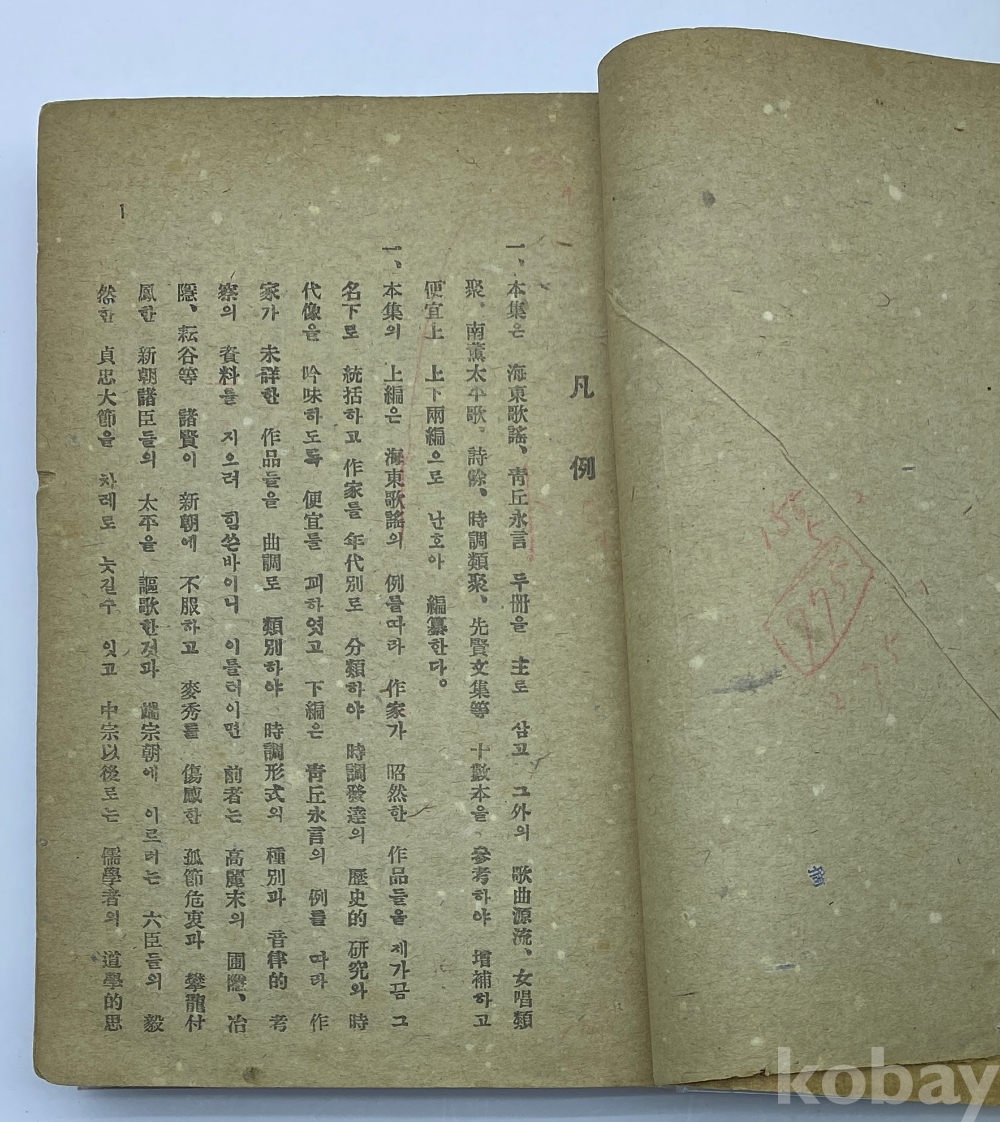 凡 例
一、本集은 海東歌謠、青丘永言 두冊을 主로 삼고 그外의 歌曲源流、女唱類
聚、南薰太平歌、詩餘、時調類聚、先賢文集等 十數本을 參考하야 增補하고
便宜上 上下兩編으로 난호아 編纂한다。
一、本集의 上編은 海東歌謠의 例를따라 作家가 昭然한 作品들을 제가끔 그
名下로 統括하고 作家를 年代別로 分類하야 時調發達의 歷史的 研究와 時
代像을 吟味하도록 便宜를 꾀하엿고 下編은 青丘永言의 例를 따라 作
家가 未詳한 作品들을 曲調로 類別하야 時調形式의 種別과 音律的 考
察의 資料를 지으려 힘쓴바이니 이를터이면 前者는 高麗末의 圃隱、冶
隱、耘谷等 諸賢이 新朝에 不服하고 麥秀를 傷感한 孤節危衷과 攀龍付
鳳한 新朝諸臣들의 太平을 謳歌한것과 端宗朝에 이르러는 六臣들의 毅
然한 貞忠大節을 차례로 늣길수 잇고 中宗以後로는 儒學者의 道學的思
1
kobay